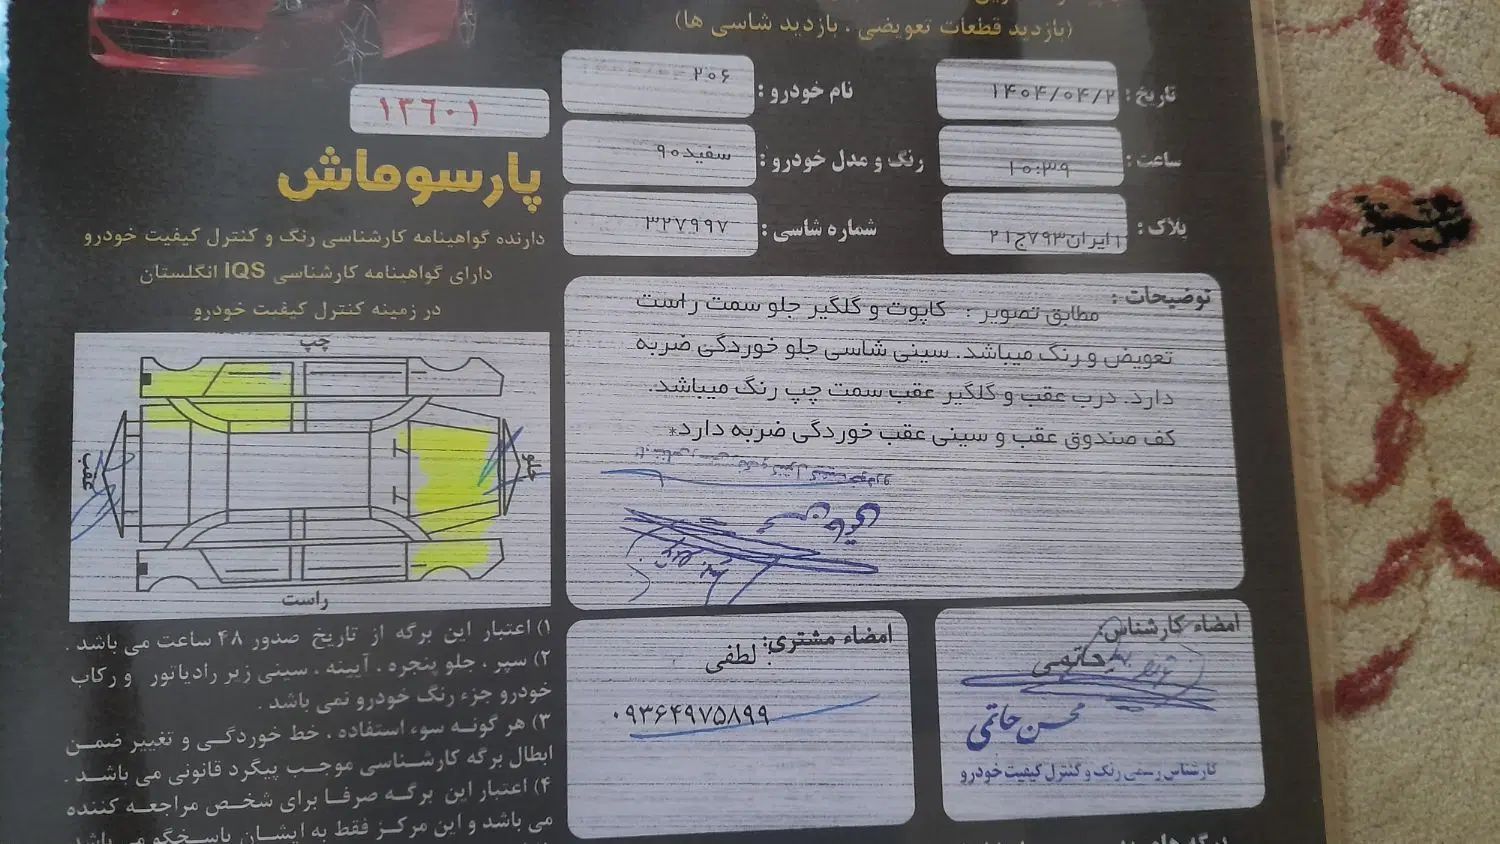 (بازدید قطعات تعویضی ، بازدید شاسی ها)
تاریخ : ۱۴۰۴/۰۴/۲
نام خودرو : ۲۰۶
۱۳٦۰۱
ساعت : ۱۰:۳۹
رنگ و مدل خودرو : سفید۹۰
پلاک : ۱ایران۷۹۳ج۲۱
شماره شاسی : ۳۲۷۹۹۷
پارسوماش
دارنده گواهینامه کارشناسی رنگ و کنترل کیفیت خودرو
دارای گواهینامه کارشناسی IQS انگلستان
در زمینه کنترل کیفیت خودرو
توضیحات :
مطابق تصویر : کاپوت و گلگیر جلو سمت راست
تعویض و رنگ میباشد. سینی شاسی جلو خوردگی ضربه
دارد. درب عقب و گلگیر عقب سمت چپ رنگ میباشد.
کف صندوق عقب و سینی عقب خوردگی ضربه دارد*
چپ
جلو
عقب
راست
امضاء کارشناس:
حاتمی
محسن حاتمی
کارشناس رسمی رنگ و کنترل کیفیت خودرو
امضاء مشتری:
لطفی
۰۹۳۶۴۹۷۵۸۹۹
۱) اعتبار این برگه از تاریخ صدور ۴۸ ساعت می باشد .
۲) سپر ، جلو پنجره ، آیینه ، سینی زیر رادیاتور و رکاب
خودرو جزء رنگ خودرو نمی باشد .
۳) هر گونه سوء استفاده ، خط خوردگی و تغییر ضمن
ابطال برگه کارشناسی موجب پیگرد قانونی می باشد .
۴) اعتبار این برگه صرفا برای شخص مراجعه کننده
می باشد و این مرکز فقط به ایشان پاسخگو می باشد